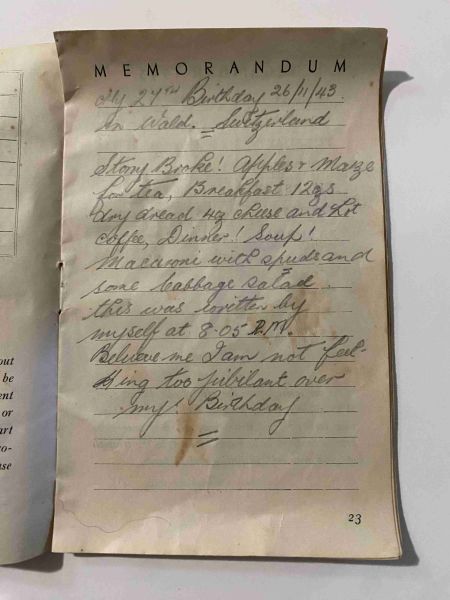 MEMORANDUM
My 27TH Birthday 26/11/43.
In Wald. Switzerland
Stony Broke! Apples + Maize
for tea, Breakfast 12gs
dry bread 4g cheese and Hot
coffee, Dinner! Soup!
Macaroni with spuds and
some Cabbage salad.
this was written by
myself at 8-05 P.M.
Believe me I am not feel-
ing too jubilant over
my! Birthday
23
out
be
ent
or
art
o-
use